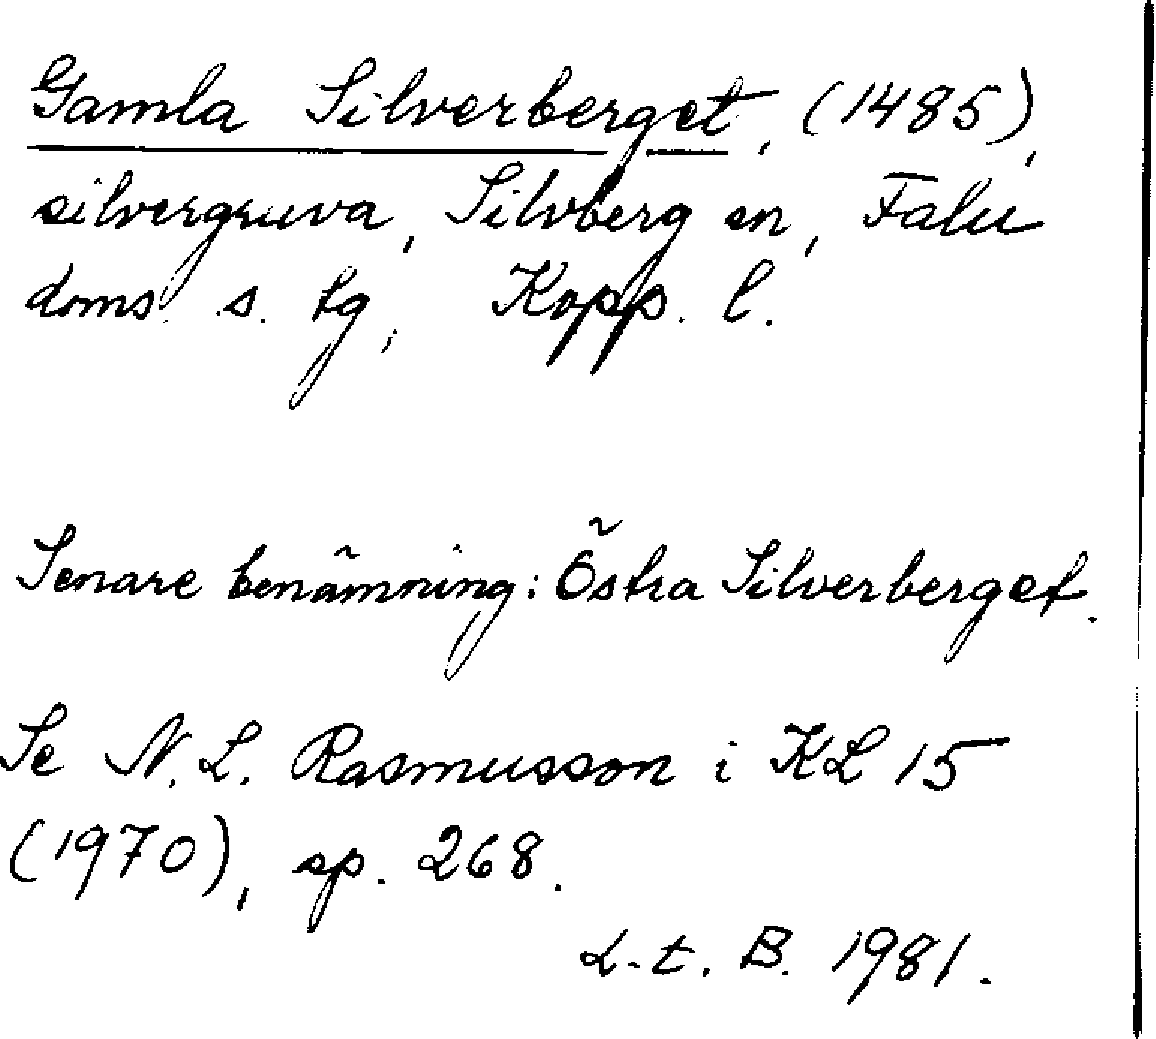 Gamla Silverberget, (1485),
silvergruva, Silvberg sn, Falu
doms. s. tg, Kopp. l.
Senare benämning: Östra Silverberget.
Se N. L. Rasmusson i KL 15
(1970), sp. 268.
L.t. B. 1981.